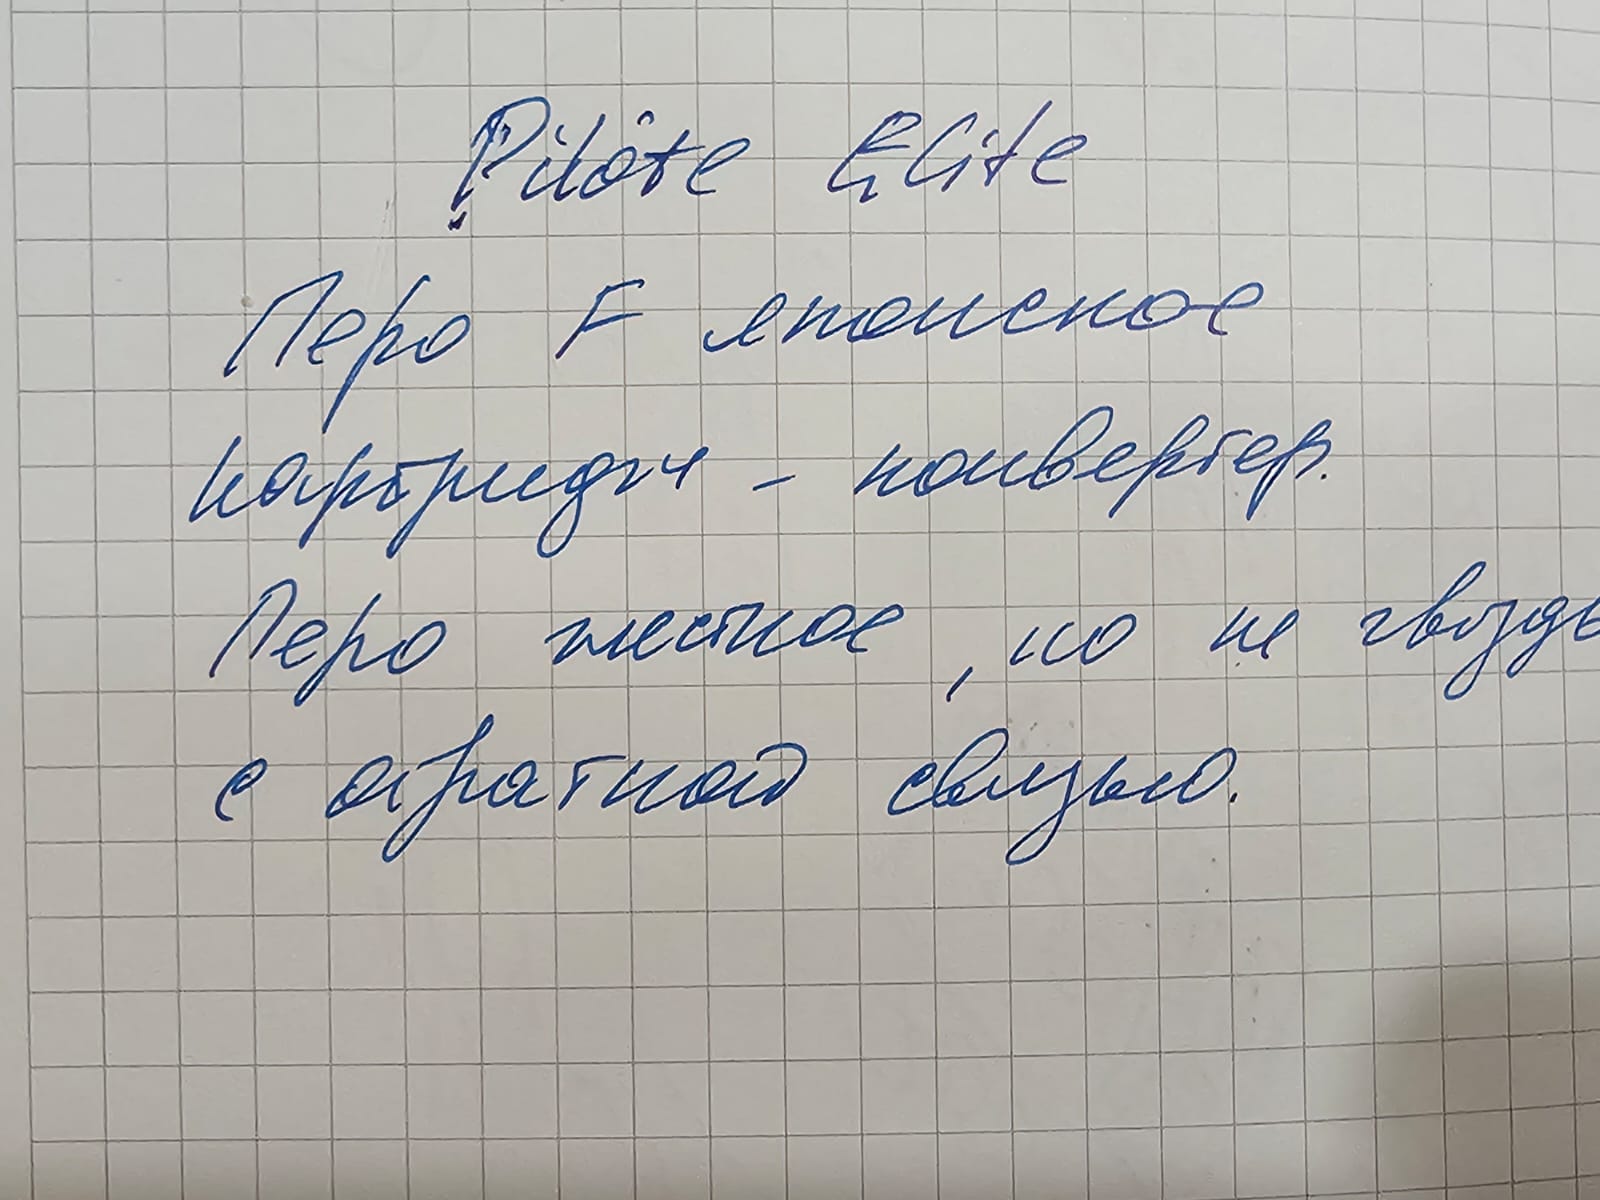 Pilote Elite
Перо F японское
картридж - конвертер.
Перо жесткое, но не гвоздь
с обратной связью.